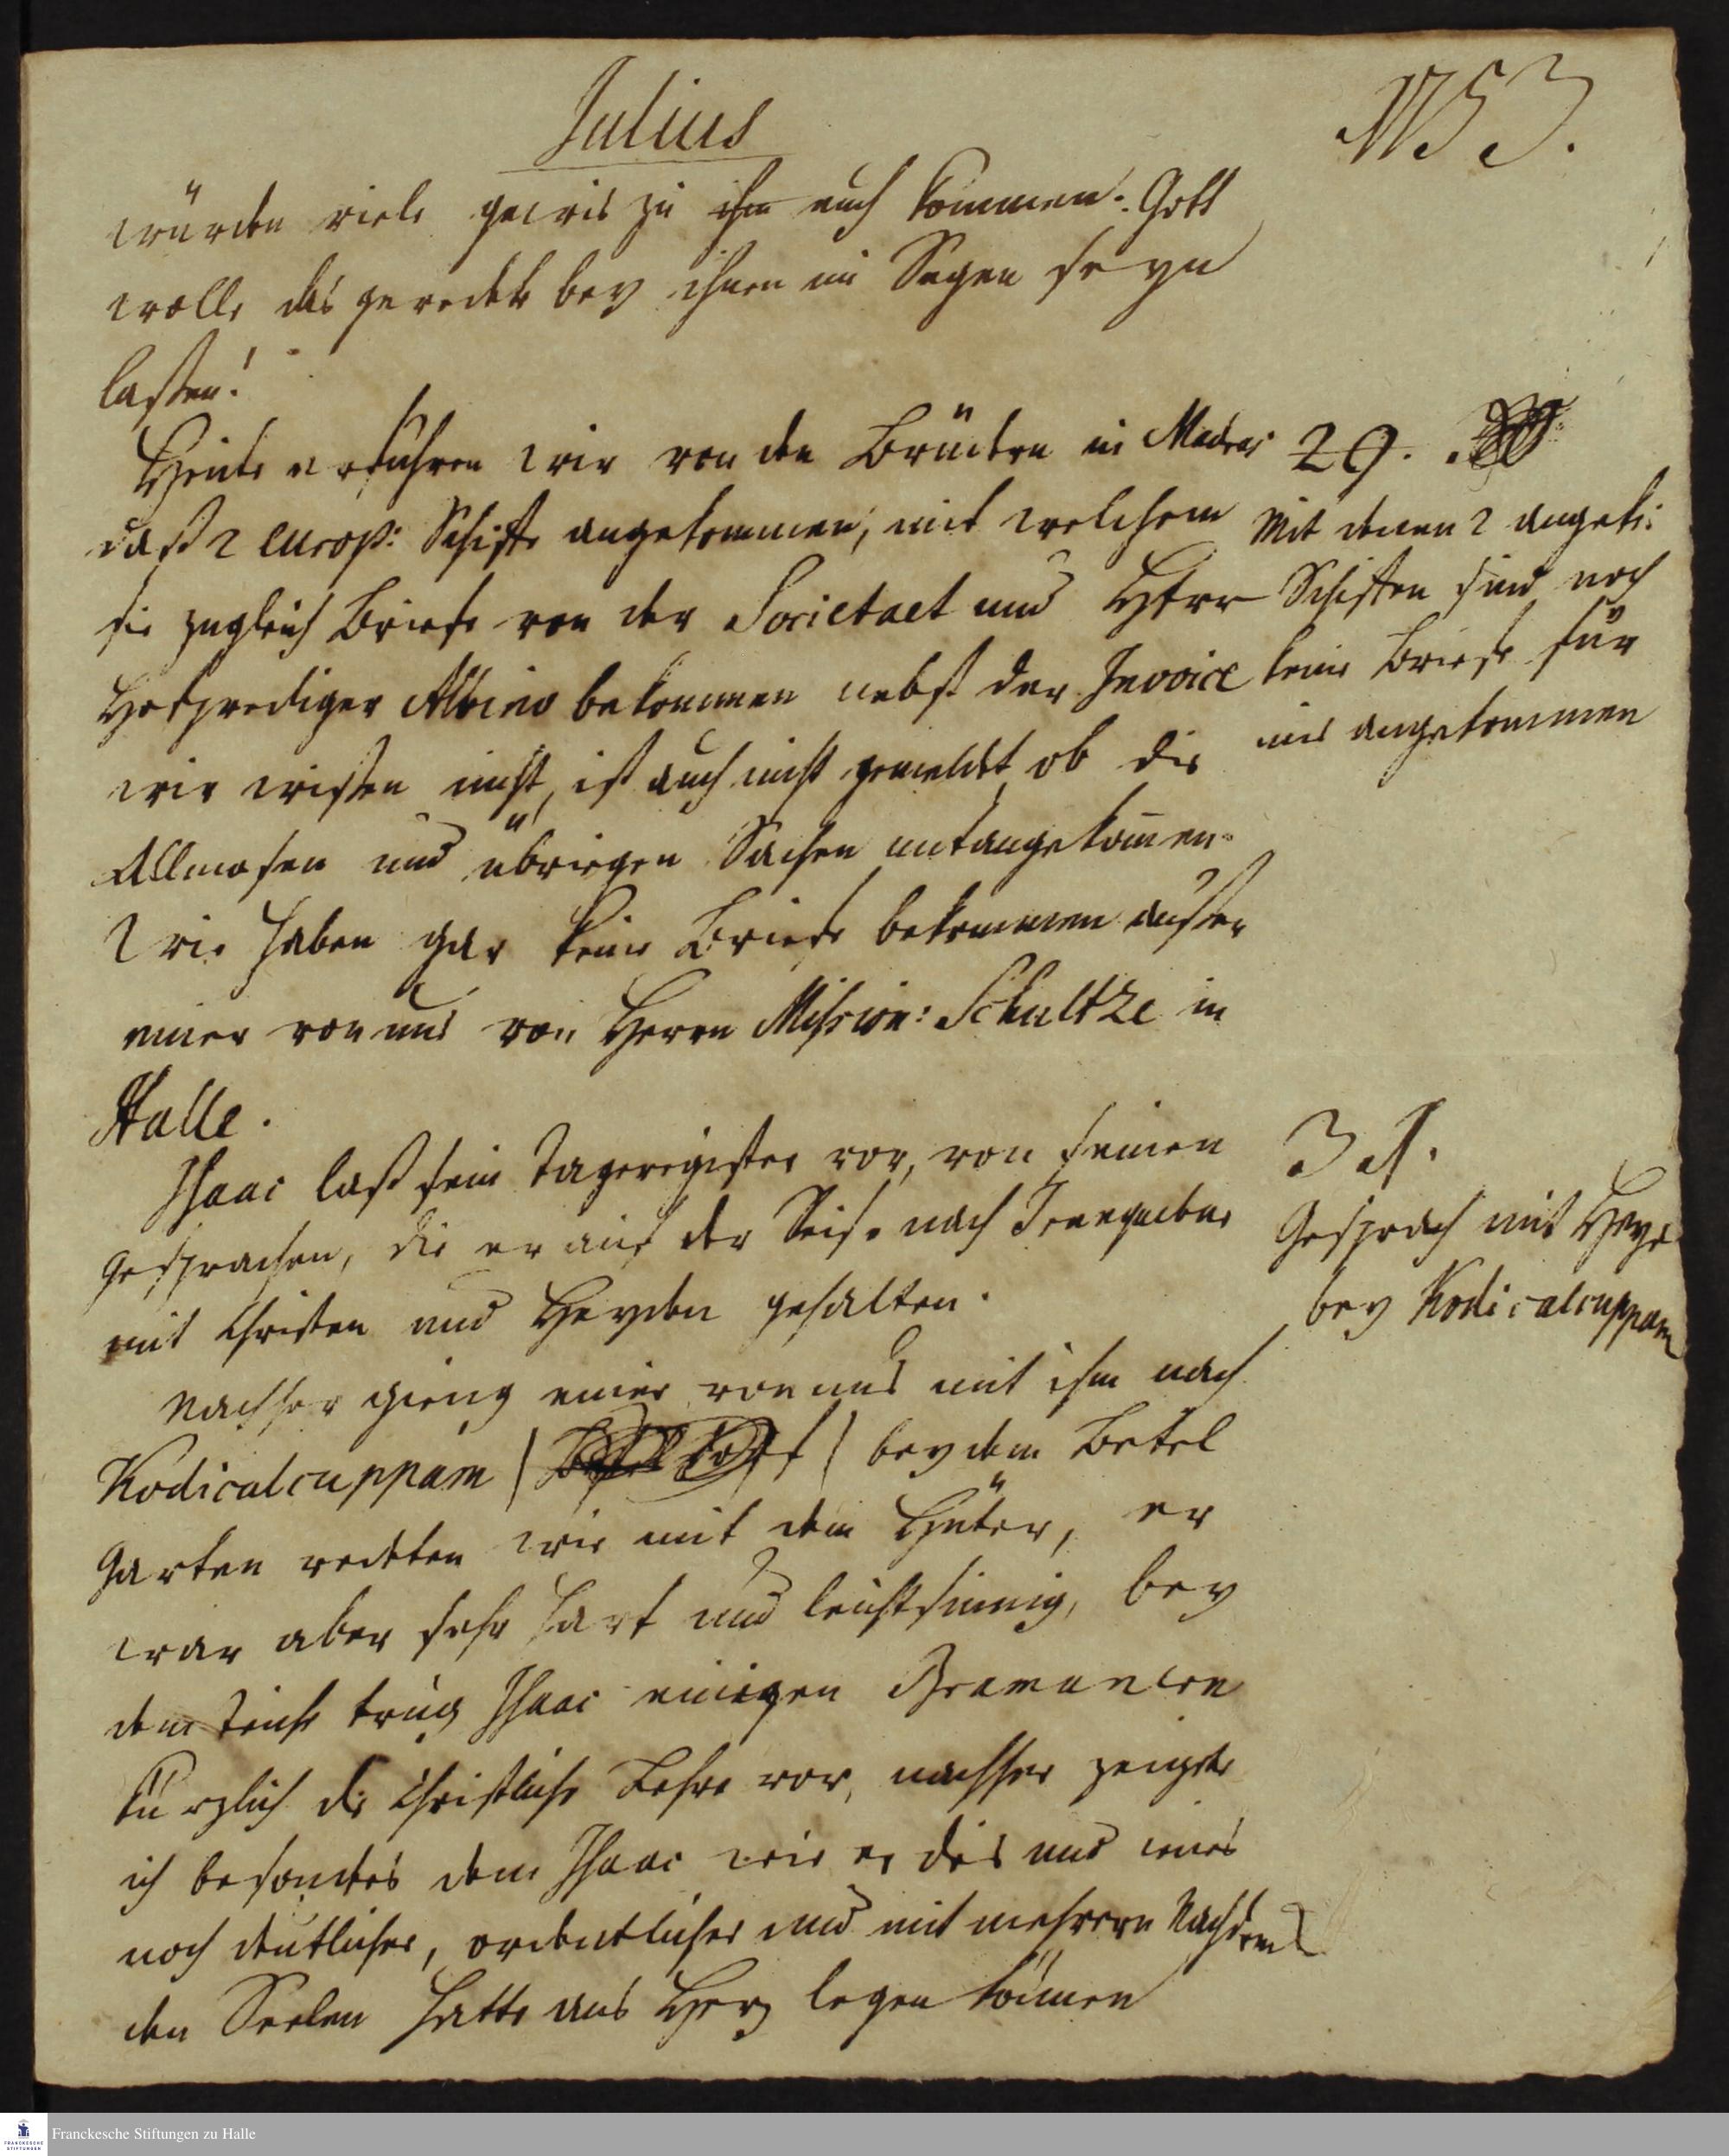 Julius
1753.
würden viele gewis zu ihm euch kommen. Gott
wolle das geredete bey ihnen im Segen seyn
laßen!
Heute erfuhren wir von den Brüdern in Madras
daß 2 europ: Schiffe angekommen, mit welchem
sie zugleich Briefe von der Societaet und Herr
Hofprediger Albino bekommen nebst der Invoice
wir wißen nicht, ist auch nicht gemeldet ob die
Allmosen und übrigen Sachen mitangekom̃en.
Wir haben gar keine Briefe bekommen außer
einer von uns von Herrn Mission: Schultze in
Halle.
29.
Mit denen 2 angek:
Schiffen sind noch
keine Briefe für
uns angekommen
Isaac laß sein Tageregister vor, von seinen
Gesprächen, die er auf der Reise nach Tranquebar
mit Christen und Heyden gehalten.
Nachher gieng einer von uns mit ihm nach
Kodicalcuppam ( ) bey dem Betel
Garten redeten wir mit dem Hüter, er
war aber sehr hart und leichtsinnig, bey
dem Teiche trug Isaac einigen Bramanern
kürzlich die Christliche Lehre vor, nachher zeigte
ich besonders dem Isaac wie er dis und jenes
noch deutlicher, ordentlicher und mit mehrern Nachdruck
den Seelen hätte ans Herz legen können
31.
Gespräch mit Heyd.
bey Kodicalcuppam
Franckesche Stiftungen zu Halle